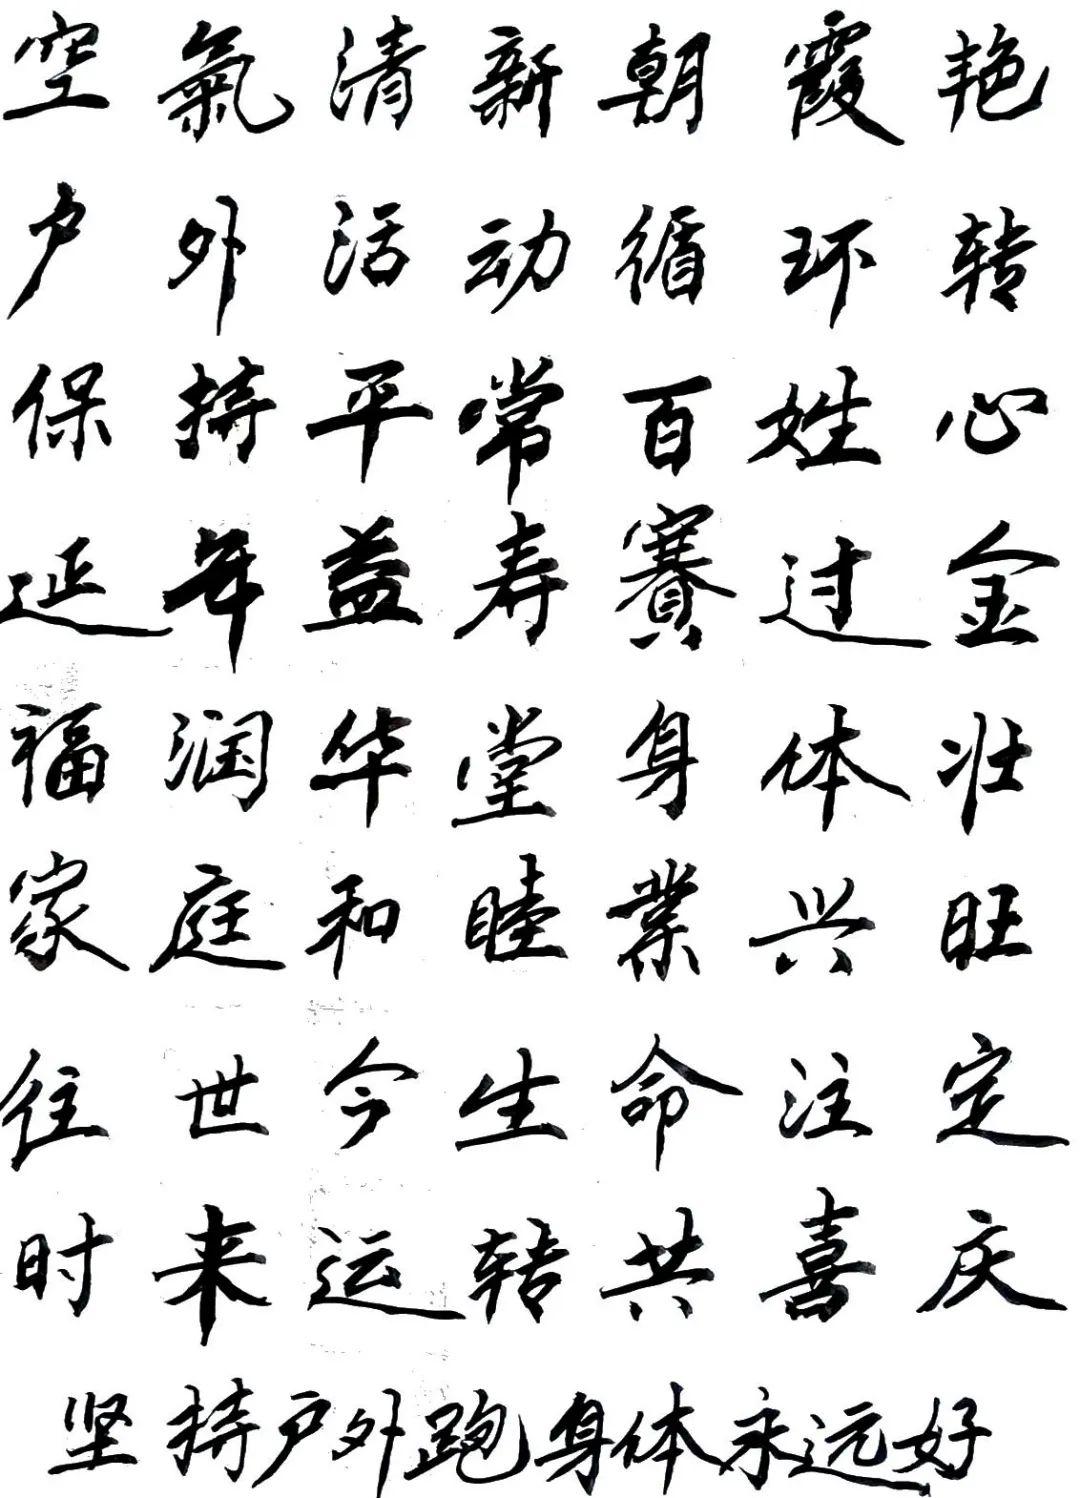 空氣清新朝霞艳
户外活动循环转
保持平常百姓心
延年益寿赛過金
福润华堂身体壮
家庭和睦業兴旺
往世今生命注定
时来运转共喜庆
坚持户外跑身体永远好